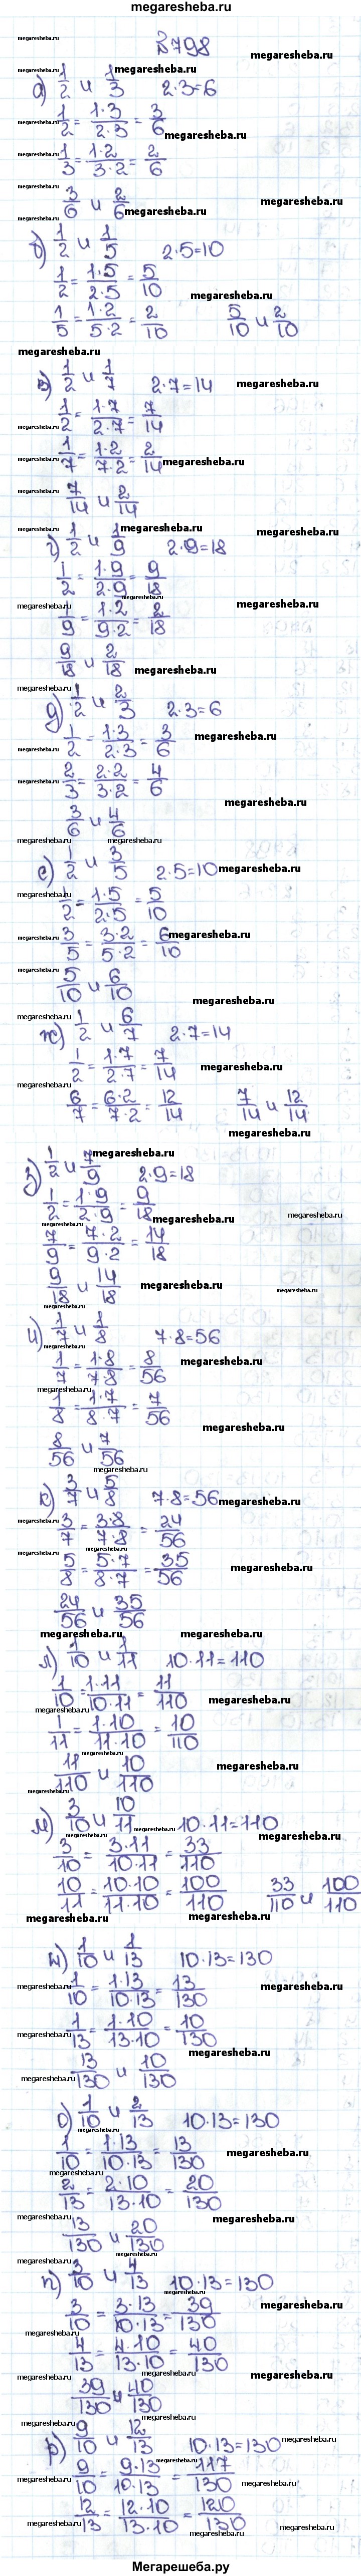 megaresheba.ru
№798
а) 1/2 и 1/3 2·3=6
1/2 = 1·3/2·3 = 3/6
1/3 = 1·2/3·2 = 2/6
3/6 и 2/6
б) 1/2 и 1/5 2·5=10
1/2 = 1·5/2·5 = 5/10
1/5 = 1·2/5·2 = 2/10 5/10 и 2/10
в) 1/2 и 1/7 2·7=14
1/2 = 1·7/2·7 = 7/14
1/7 = 1·2/7·2 = 2/14
7/14 и 2/14
г) 1/2 и 1/9 2·9=18
1/2 = 1·9/2·9 = 9/18
1/9 = 1·2/9·2 = 2/18
9/18 и 2/18
д) 1/2 и 2/3 2·3=6
1/2 = 1·3/2·3 = 3/6
2/3 = 2·2/3·2 = 4/6
3/6 и 4/6
е) 1/2 и 3/5 2·5=10
1/2 = 1·5/2·5 = 5/10
3/5 = 3·2/5·2 = 6/10
5/10 и 6/10
ж) 1/2 и 6/7 2·7=14
1/2 = 1·7/2·7 = 7/14
6/7 = 6·2/7·2 = 12/14 7/14 и 12/14
з) 1/2 и 7/9 2·9=18
1/2 = 1·9/2·9 = 9/18
7/9 = 7·2/9·2 = 14/18
9/18 и 14/18
и) 1/7 и 1/8 7·8=56
1/7 = 1·8/7·8 = 8/56
1/8 = 1·7/8·7 = 7/56
8/56 и 7/56
к) 3/7 и 5/8 7·8=56
3/7 = 3·8/7·8 = 24/56
5/8 = 5·7/8·7 = 35/56
24/56 и 35/56
л) 1/10 и 1/11 10·11=110
1/10 = 1·11/10·11 = 11/110
1/11 = 1·10/11·10 = 10/110
11/110 и 10/110
м) 3/10 и 10/11 10·11=110
3/10 = 3·11/10·11 = 33/110
10/11 = 10·10/11·10 = 100/110 33/110 и 100/110
н) 1/10 и 1/13 10·13=130
1/10 = 1·13/10·13 = 13/130
1/13 = 1·10/13·10 = 10/130
13/130 и 10/130
о) 1/10 и 2/13 10·13=130
1/10 = 1·13/10·13 = 13/130
2/13 = 2·10/13·10 = 20/130
13/130 и 20/130
п) 3/10 и 4/13 10·13=130
3/10 = 3·13/10·13 = 39/130
4/13 = 4·10/13·10 = 40/130
39/130 и 40/130
р) 9/10 и 12/13 10·13=130
9/10 = 9·13/10·13 = 117/130
12/13 = 12·10/13·10 = 120/130
Мегарешеба.ру